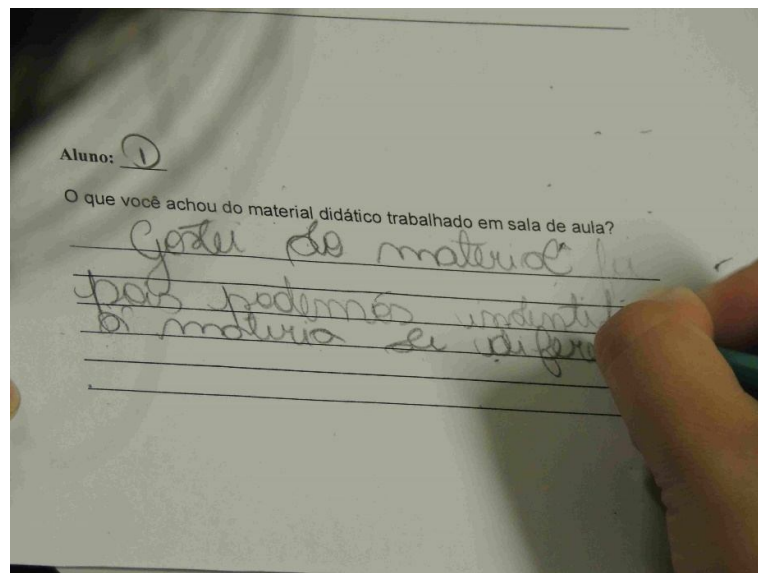 Aluno: 1
O que você achou do material didático trabalhado em sala de aula?
Gostei do material
pois podemos indentifi
a materia de difere